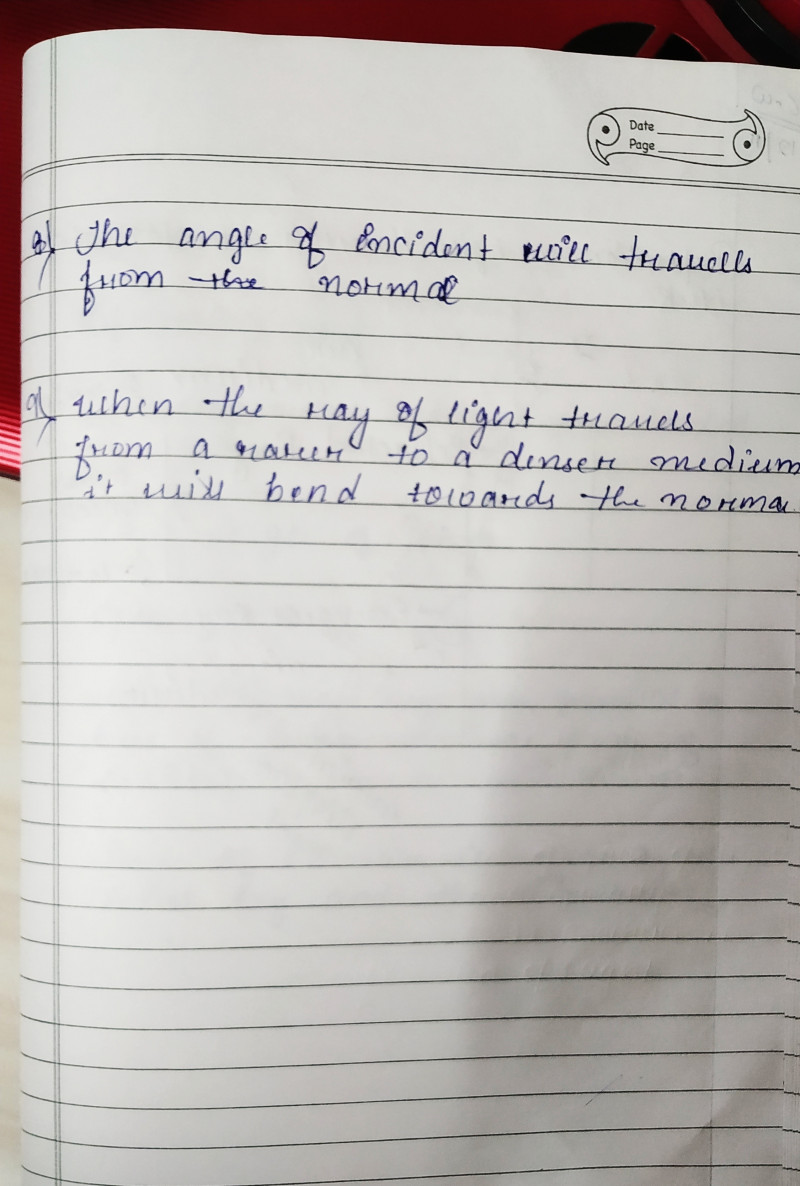 Date
Page
a) The angle of incident will travells
from the normal
a) when the ray of light travels
from a rarer to a denser medium
it will bend towards the norma